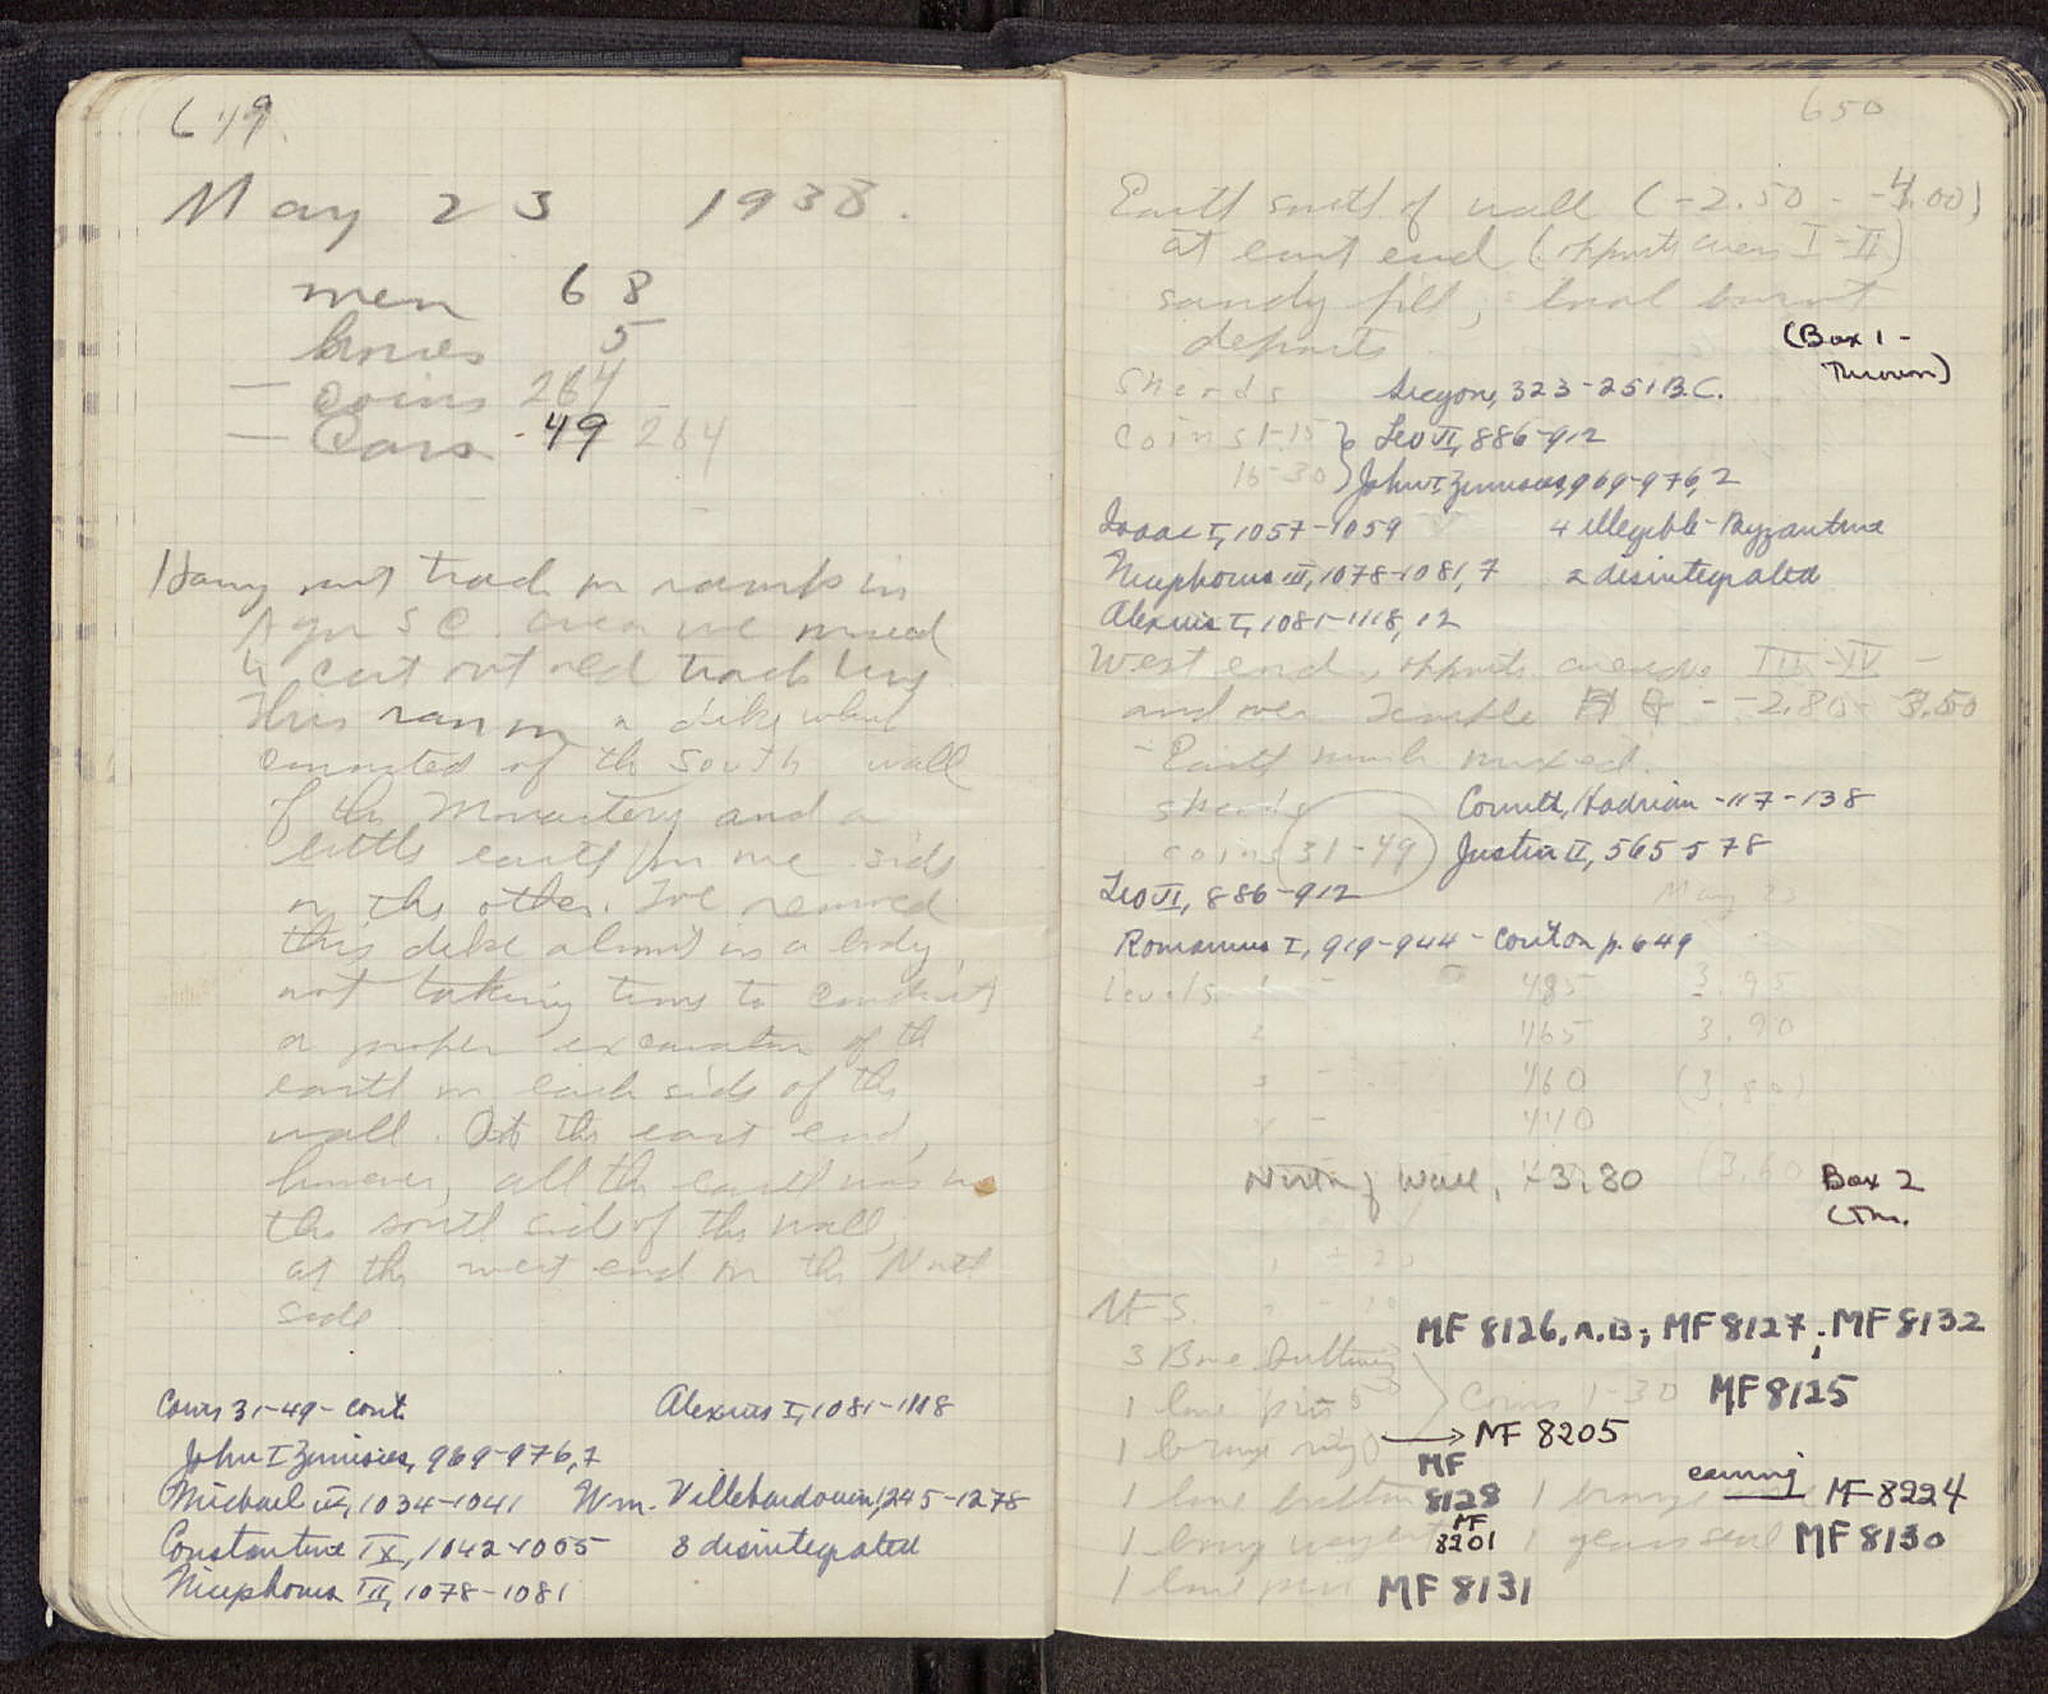 649
May 23 1938.
men 68
horses 5
— coins 264
— Cars 49 264
Having put track on ramp in
Agora S C. area we moved
to cart out old track
This ran on a dike which
consisted of the South wall
of the Monastery and a
little earth on one side
or the other. I've removed
this dike almost in a body,
not taking time to conduct
a proper excavation of the
earth on each side of the
wall. At the east end,
however, all the earth was on
the south side of the wall,
at the west end on the North
side.
Coins 31-49 - cont. Alexius I, 1081-1118
John I Zimisces, 969-976, 7
Michael IV, 1034-1041 Wm. Villehardouin, 1245-1278
Constantine IX, 1042-1055 8 disintegrated
Nicephorus III, 1078-1081
650
Earth south of wall (-2.50 - -4.00)
at east end (opposite areas I-II)
sandy fill, local burnt
deposits.
(Box 1 -
Thrown)
Sherds Sicyon, 323-251 B.C.
Coins 1-15 } Leo VI, 886-912
16-30 } John I Zimisces, 969-976, 2
Isaac I, 1057-1059 4 illegible - Byzantine
Nicephorus III, 1078-1081, 7 2 disintegrated
Alexius I, 1081-1118, 12
West end, opposite areas III-IV -
and over Temple - -2.80 - 3.50
- Earth much mixed.
sherds Corinth, Hadrian - 117-138
coins (31-49) Justin II, 565-578
Leo VI, 886-912 May 23
Romanus I, 919-944 - cont. on p. 649
Levels 1 - 485 3.95
2 465 3.90
3 - 460 (3.80)
4 - 440
North of Wall, 3.80 (3.60
Box 2
(Thr.
MFS.
MF 8126, A.B; MF 8127; MF 8132
3 Bone buttons
1 bone pin } Coins 1-30 MF 8125
1 bronze ring → MF 8205
1 bone button MF 8128 1 bronze earring MF 8224
1 bronze weight MF 8201 1 glass seal MF 8130
1 bone pin MF 8131